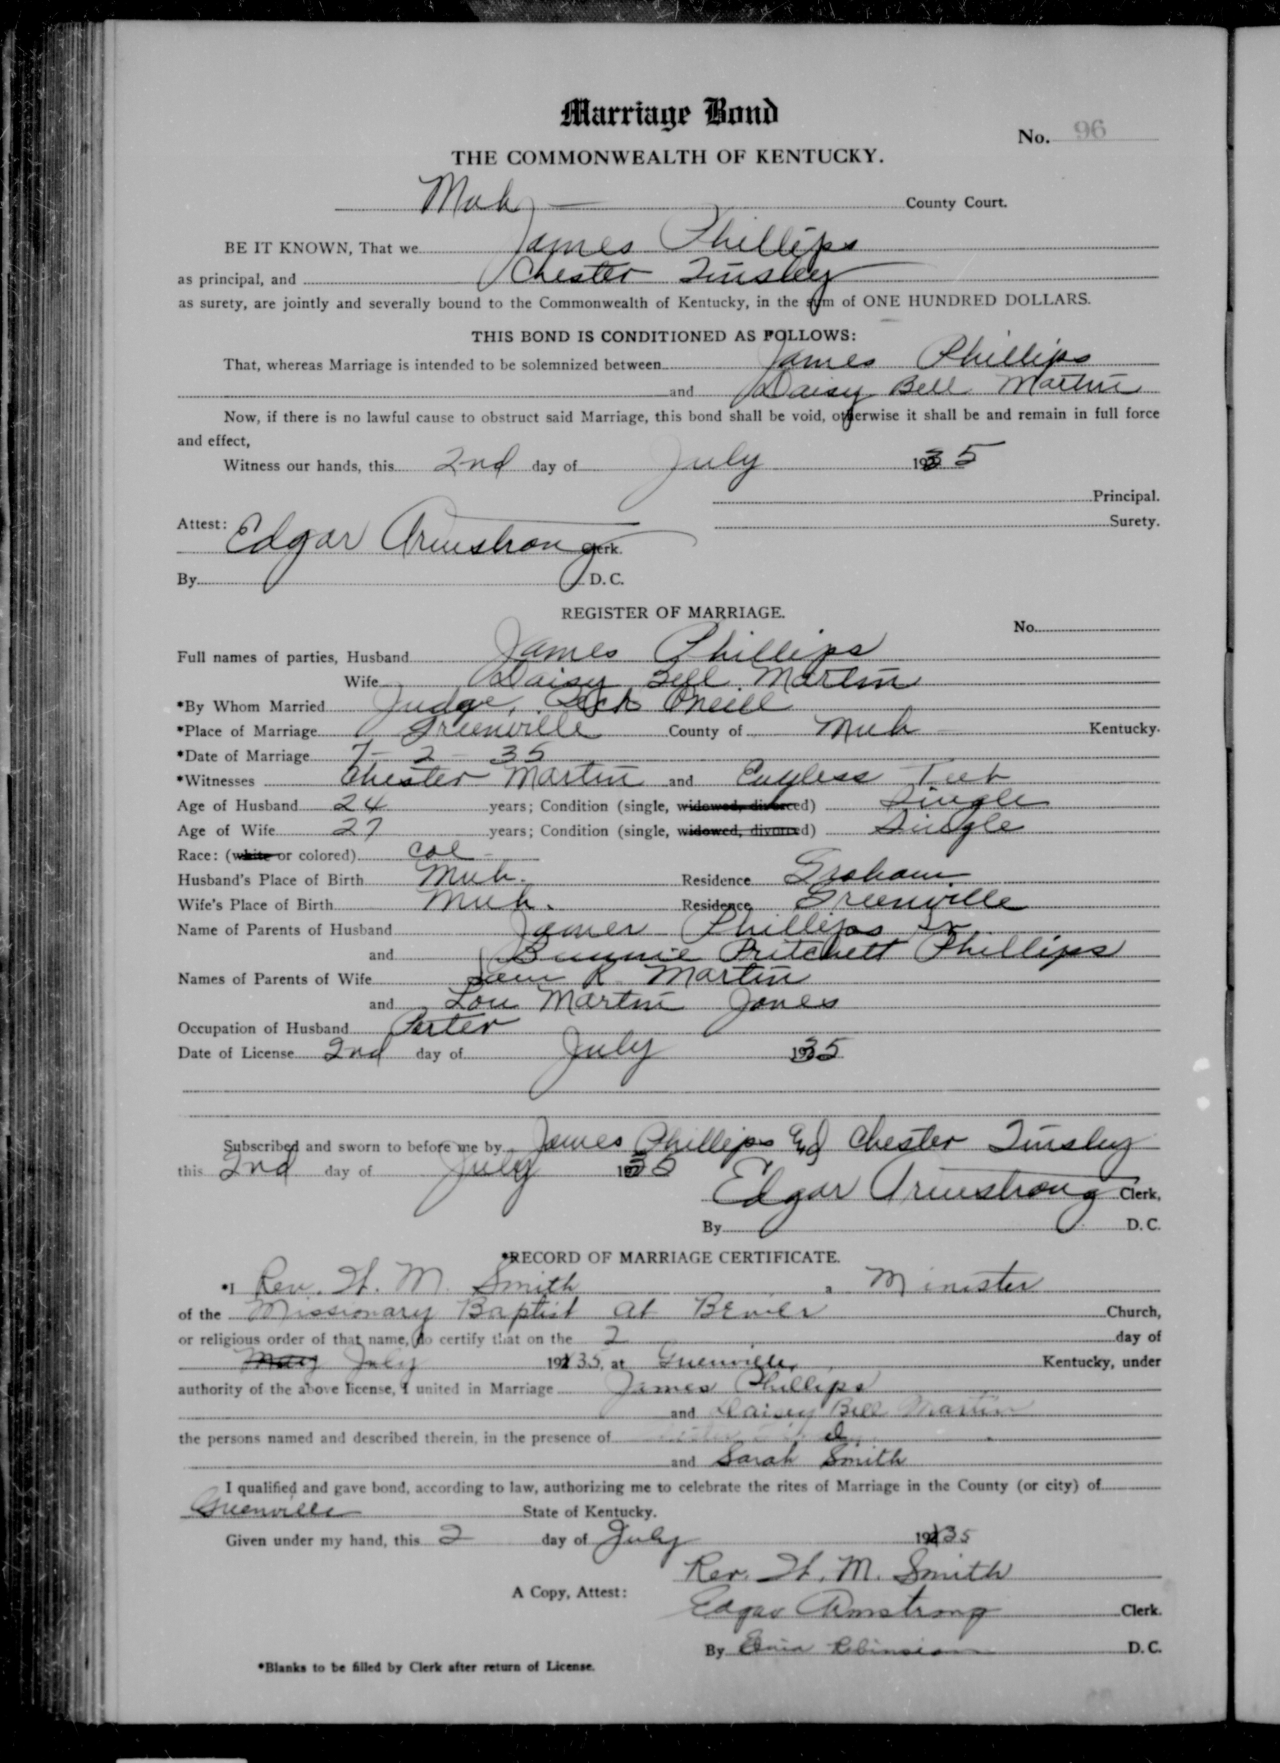 Marriage Bond
No. 96
THE COMMONWEALTH OF KENTUCKY.
Muh County Court.
BE IT KNOWN, That we James Phillips
as principal, and Chester Tinsley
as surety, are jointly and severally bound to the Commonwealth of Kentucky, in the sum of ONE HUNDRED DOLLARS.
THIS BOND IS CONDITIONED AS FOLLOWS:
That, whereas Marriage is intended to be solemnized between James Phillips
and Daisy Bell Martin
Now, if there is no lawful cause to obstruct said Marriage, this bond shall be void, otherwise it shall be and remain in full force
and effect,
Witness our hands, this 2nd day of July 1935
Principal.
Surety.
Attest: Edgar Armstrong Clerk.
By D. C.
REGISTER OF MARRIAGE.
No.
Full names of parties, Husband James Phillips
Wife Daisy Bell Martin
*By Whom Married Judge, Oneill
*Place of Marriage Greenville County of Muh Kentucky.
*Date of Marriage 7-2-35
*Witnesses Chester Martin and
Age of Husband 24 years; Condition (single, widowed, divorced) Single
Age of Wife 27 years; Condition (single, widowed, divorced) Single
Race: (white or colored) Col -
Husband's Place of Birth Muh. Residence Graham
Wife's Place of Birth Muh. Residence Greenville
Name of Parents of Husband James Phillips Sr
and Pritchett Phillips
Names of Parents of Wife Sam R Martin
and Lou Martin Jones
Occupation of Husband Porter
Date of License 2nd day of July 1935
Subscribed and sworn to before me by James Phillips and Chester Tinsley
this 2nd day of July 1935
Edgar Armstrong Clerk,
By D. C.
*RECORD OF MARRIAGE CERTIFICATE.
*I Rev. W. M. Smith, a Minister
of the Missionary Baptist at Church,
or religious order of that name, do certify that on the 2 day of
May July 1935, at Greenville, Kentucky, under
authority of the above license, I united in Marriage James Phillips
and Daisy Bell Martin
the persons named and described therein, in the presence of
and Sarah Smith
I qualified and gave bond, according to law, authorizing me to celebrate the rites of Marriage in the County (or city) of
Greenville State of Kentucky.
Given under my hand, this 2 day of July 1935
Rev. W. M. Smith
A Copy, Attest: Edgar Armstrong Clerk.
By Robinson D. C.
*Blanks to be filled by Clerk after return of License.